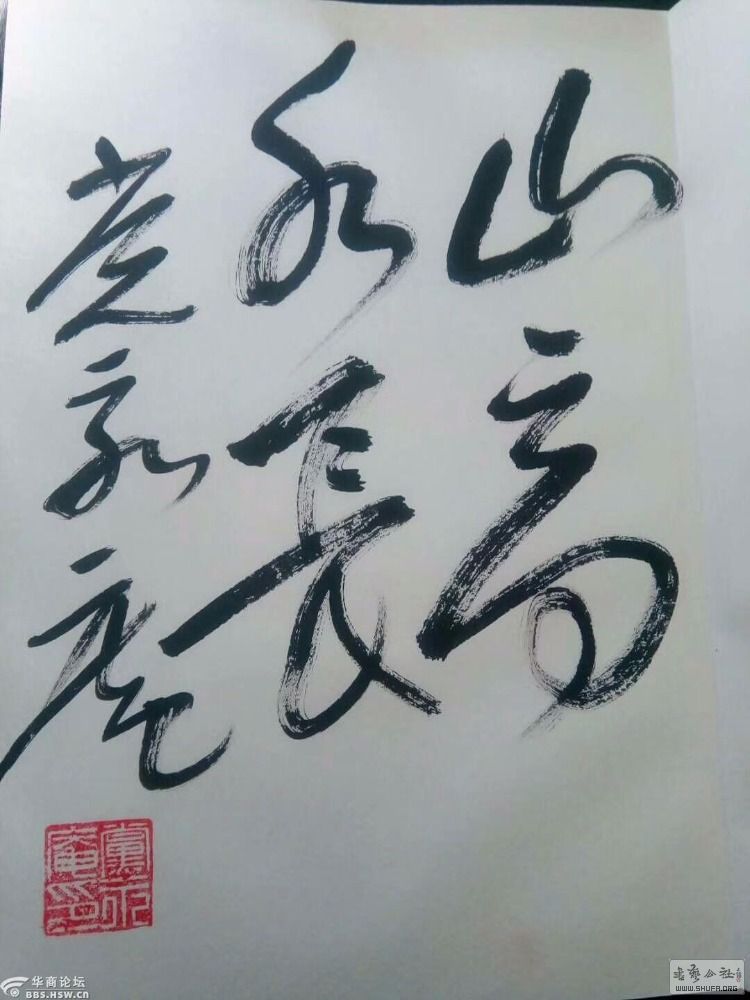 山高
水长
党永庵
黨永庵印
华商论坛
BBS.HSW.CN
书艺公社
WWW.SHUFA.ORG